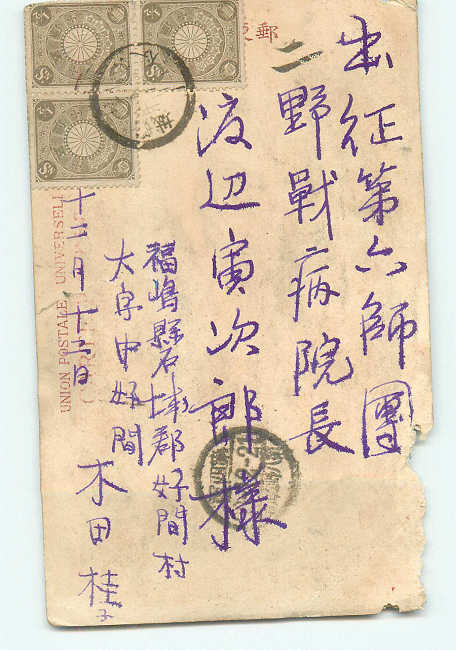 出征第六師團
二野戰病院長
渡辺寅次郎様
福嶋縣石城郡好間村
大字中好間
木田桂子
十二月十三日
UNION POSTALE UNIVERSELL